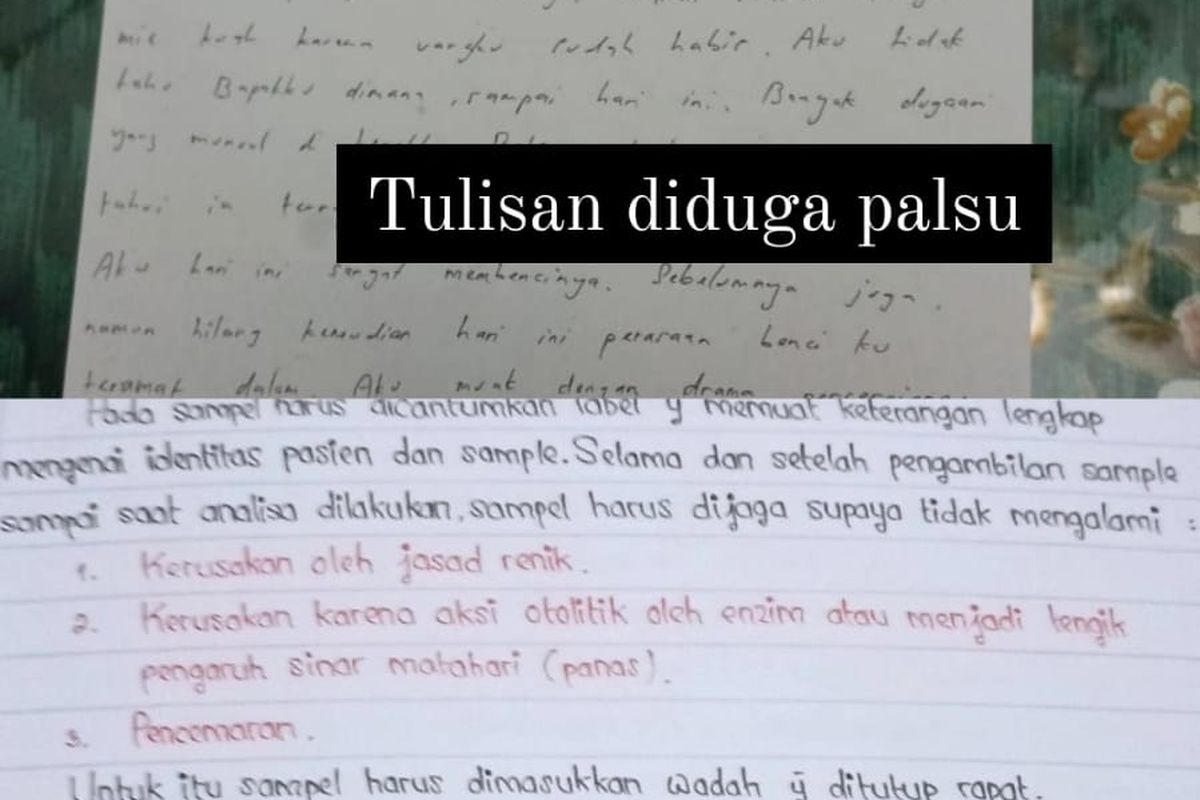 mie kuah karena uangku sudah habis. Aku tidak
tahu Bapakku dimana, sampai hari ini. Banyak dugaan
yang muncul di
Tulisan diduga palsu
tahui in
Aku hari ini sangat membencinya. Sebelumnya juga.
namun hilang kemudian hari ini perasaan benci ku
teramat dalam Aku muak dengan drama
Pada sampel harus dicantumkan label y memuat keterangan lengkap
mengenai identitas pasien dan sample. Selama dan setelah pengambilan sample
sampai saat analisa dilakukan, sampel harus dijaga supaya tidak mengalami :
1. Kerusakan oleh jasad renik.
2. Kerusakan karena aksi otolitik oleh enzim atau menjadi tengik
pengaruh sinar matahari (panas).
3. Pencemaran.
Untuk itu sampel harus dimasukkan wadah ÿ ditutup rapat.